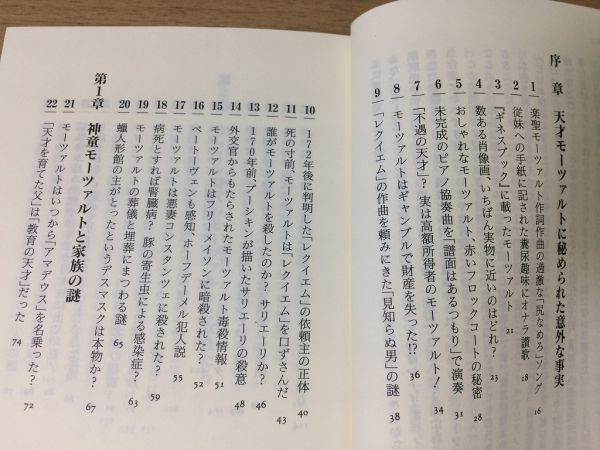 序章 天才モーツァルトに秘められた意外な事実
1 楽聖モーツァルト作詞作曲の過激な「尻なめろ」ソング 16
2 従妹への手紙に記された糞尿趣味にオナラ讃歌 18
3 『ギネスブック』に載ったモーツァルト 21
4 数ある肖像画、いちばん実物に近いのはどれ? 23
5 おしゃれなモーツァルト、赤いフロックコートの秘密 28
6 未完成のピアノ協奏曲を「譜面はあるつもり」で演奏 31
7 「不遇の天才」? 実は高額所得者のモーツァルト! 34
8 モーツァルトはギャンブルで財産を失った!? 36
9 「レクイエム」の作曲を頼みにきた「見知らぬ男」の謎 38
10 172年後に判明した「レクイエム」の依頼主の正体 40
11 死の寸前、モーツァルトは「レクイエム」を口ずさんだ 43
12 誰がモーツァルトを殺したのか? サリエーリか? 46
13 170年前、プーシキンが描いたサリエーリの殺意 48
14 外交官からもたらされたモーツァルト毒殺情報 51
15 モーツァルトはフリーメイソンに暗殺された? 52
16 ベートーヴェンも感知、ホーフデーメル犯人説 55
17 モーツァルトは悪妻コンスタンツェに殺された? 58
18 病死とすれば腎臓病? 豚の寄生虫による感染症? 59
19 モーツァルトの葬儀と埋葬にまつわる謎 63
20 蠟人形館の主がとったというデスマスクは本物か? 65
第1章 神童モーツァルトと家族の謎 67
21 モーツァルトはいつから「アマデウス」を名乗った? 72
22 「天才を育てた父」は「教育の天才」だった 74